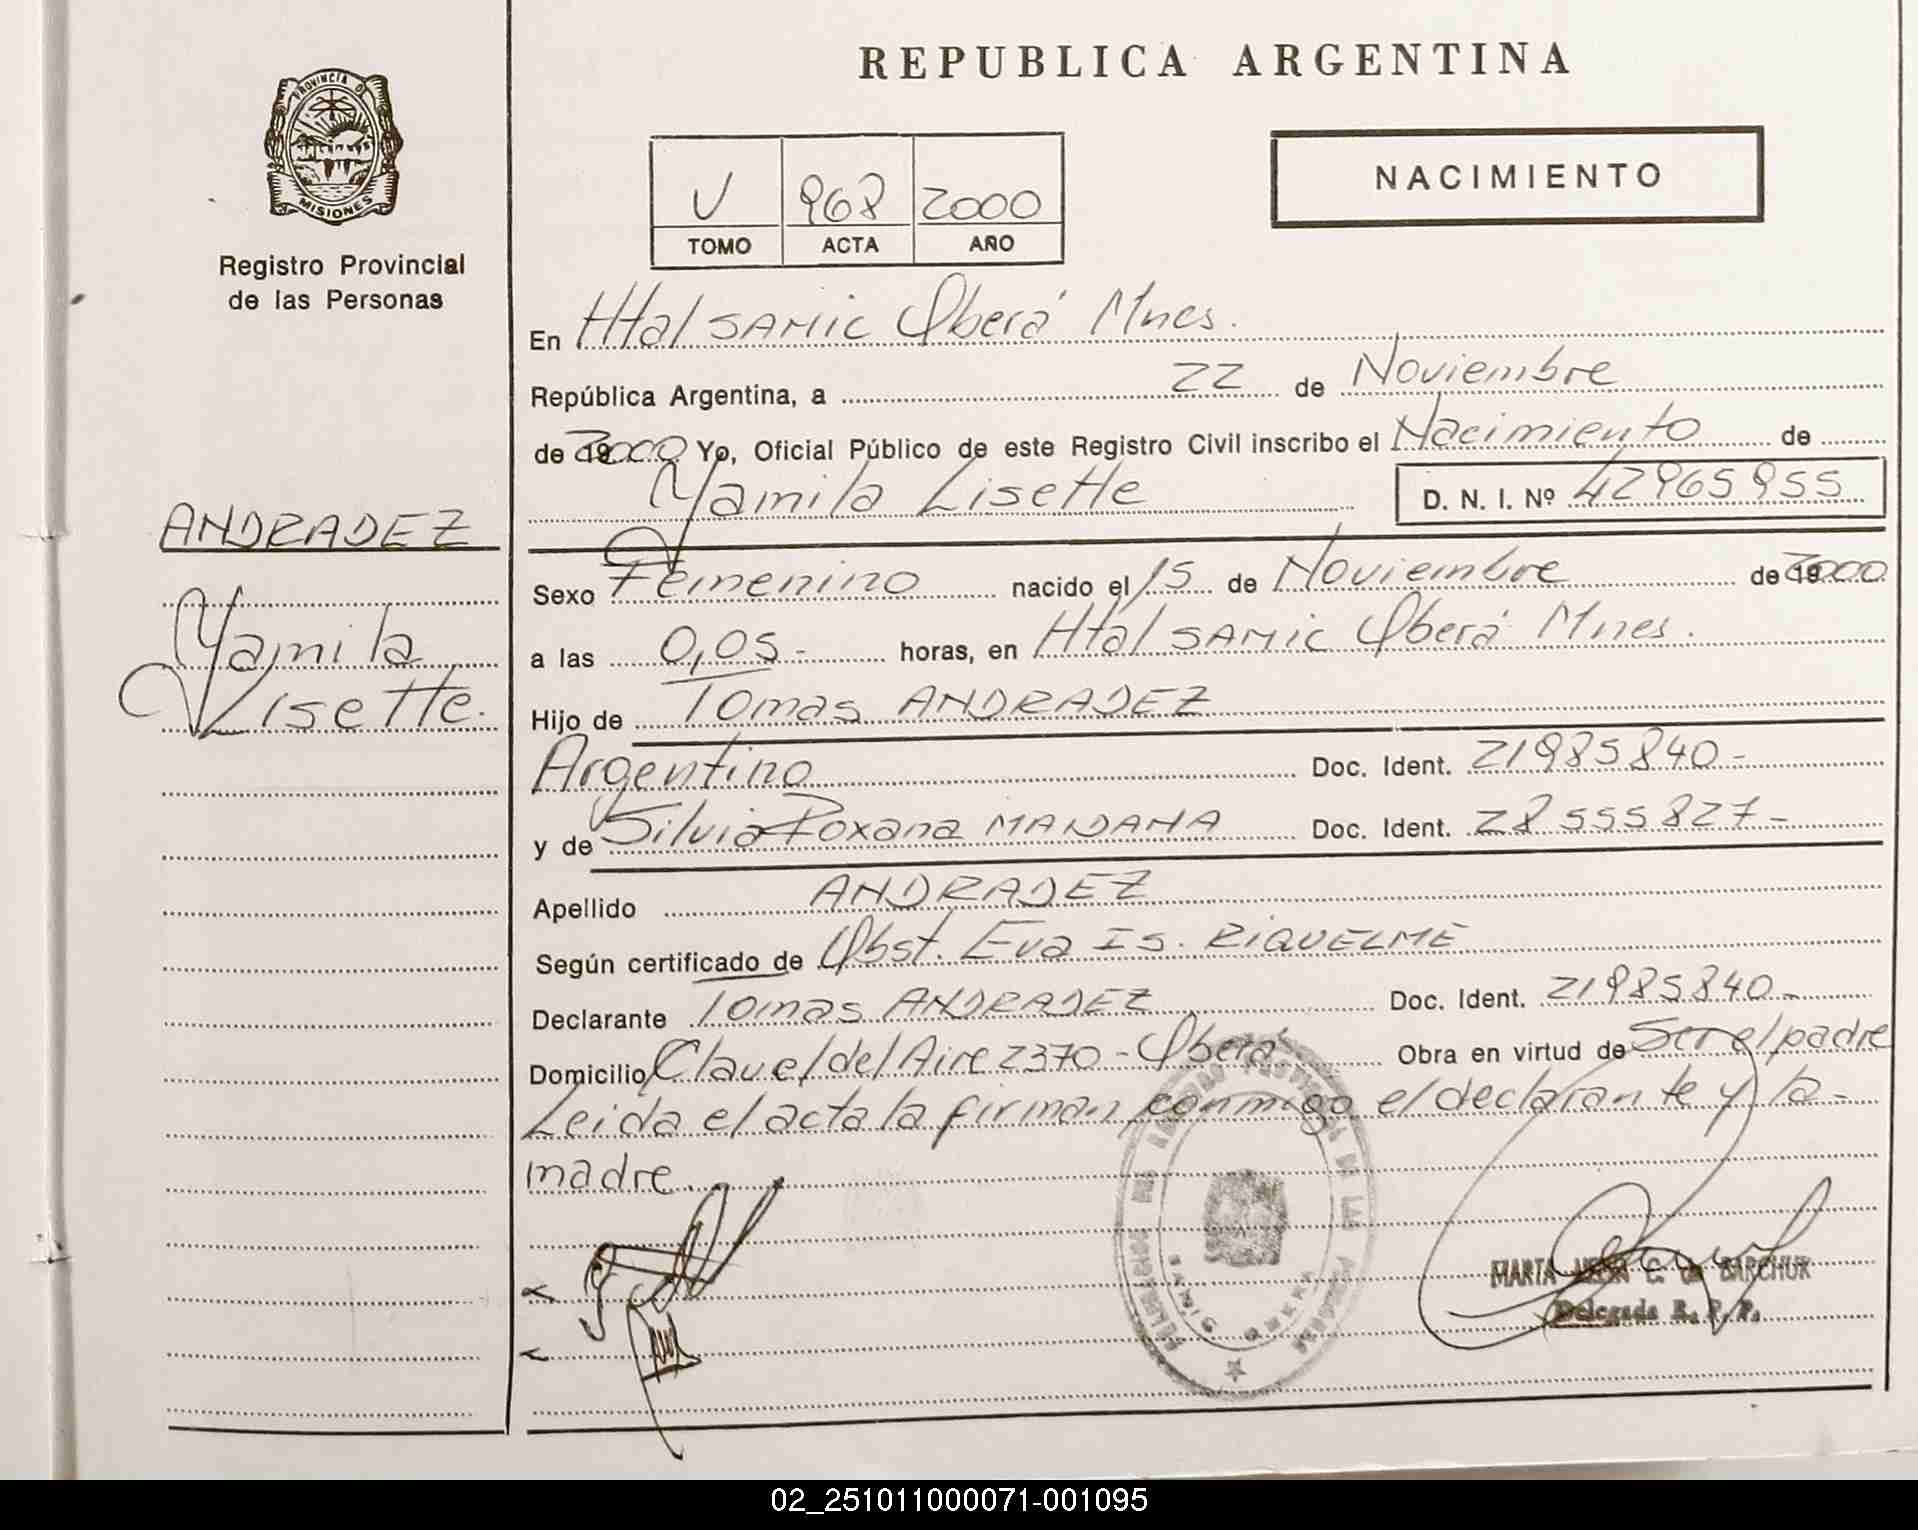 REPUBLICA ARGENTINA
PROVINCIA DE
MISIONES
Registro Provincial
de las Personas
V 968 2000
TOMO ACTA AÑO
NACIMIENTO
En Htal SAMIC Oberá Mnes.
República Argentina, a 22 de Noviembre
de 2000 Yo, Oficial Público de este Registro Civil inscribo el Nacimiento de
Yamila Lisette D. N. I. Nº 42965955
ANDRADEZ
Yamila
Lisette.
Sexo Femenino nacido el 15 de Noviembre de 2000
a las 0,05- horas, en Htal SAMIC Oberá Mnes.
Hijo de Tomas ANDRADEZ
Argentino Doc. Ident. 21985840-
y de Silvia Roxana MAIDANA Doc. Ident. 28555827-
Apellido ANDRADEZ
Según certificado de Obst. Eva Is. RIQUELME
Declarante Tomas ANDRADEZ Doc. Ident. 21985840-
Domicilio Clavel del Aire 2370 - Oberá Obra en virtud de Ser el padre
Leida el acta la firman conmigo el declarante y la-
madre.
MARTA C. de BARCHUK
Delegada R. P. P.
02_251011000071-001095